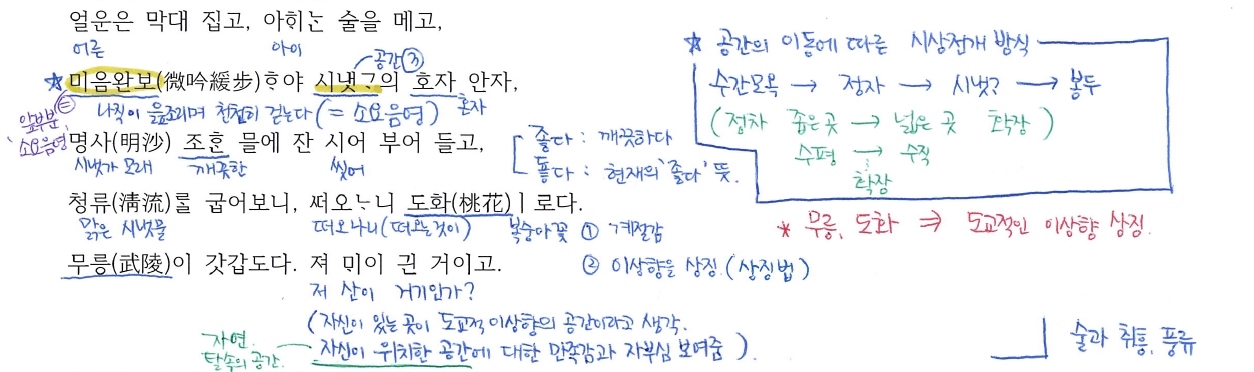 얼운은 막대 집고, 아ᄒᆡᄂᆞᆫ 술을 메고,
어른 아이 공간③
☆ 미음완보(微吟緩步)ᄒᆞ야 시냇ᄀᆞ의 호자 안자,
나직이 읊조리며 천천히 걷는다 (= 소요음영) 혼자
앞부분 '소요음영' =
명사(明沙) 조ᄒᆞᆫ 믈에 잔 시어 부어 들고,
시냇가 모래 깨끗한 씻어
좋다 : 깨끗하다
둏다 : 현재의 '좋다' 뜻.
청류(淸流)ᄅᆞᆯ 굽어보니, ᄯᅥ오ᄂᆞ니 도화(桃花)ㅣ로다.
맑은 시냇물 떠오나니(떠오는것이) 복숭아꽃 ① 계절감
② 이상향을 상징.(상징법)
무릉(武陵)이 갓갑도다. 져 ᄆᆡ이 긘 거이고.
저 산이 거기인가?
(자신이 있는 곳이 도교적 이상향의 공간이라고 생각.
자신이 위치한 공간에 대한 만족감과 자부심 보여줌).
자연.
탈속의 공간.
☆ 공간의 이동에 따른 시상전개 방식
수간모옥 → 정자 → 시냇? → 봉두
(점차 좁은곳 → 넓은 곳 확장)
수평 → 수직
확장
* 무릉, 도화 ⇒ 도교적인 이상향 상징.
술과 취흥, 풍류